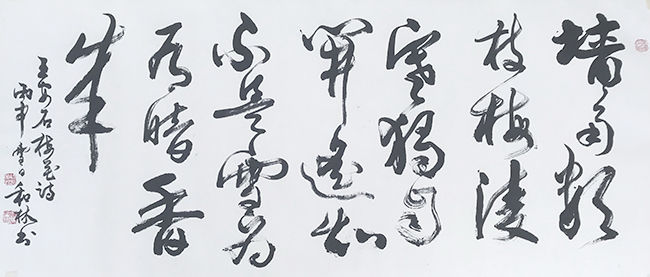 墙角数
枝梅凌
寒独自
開遥知
不是雪为
有暗香
来
王安石梅花诗
丙申日和林书